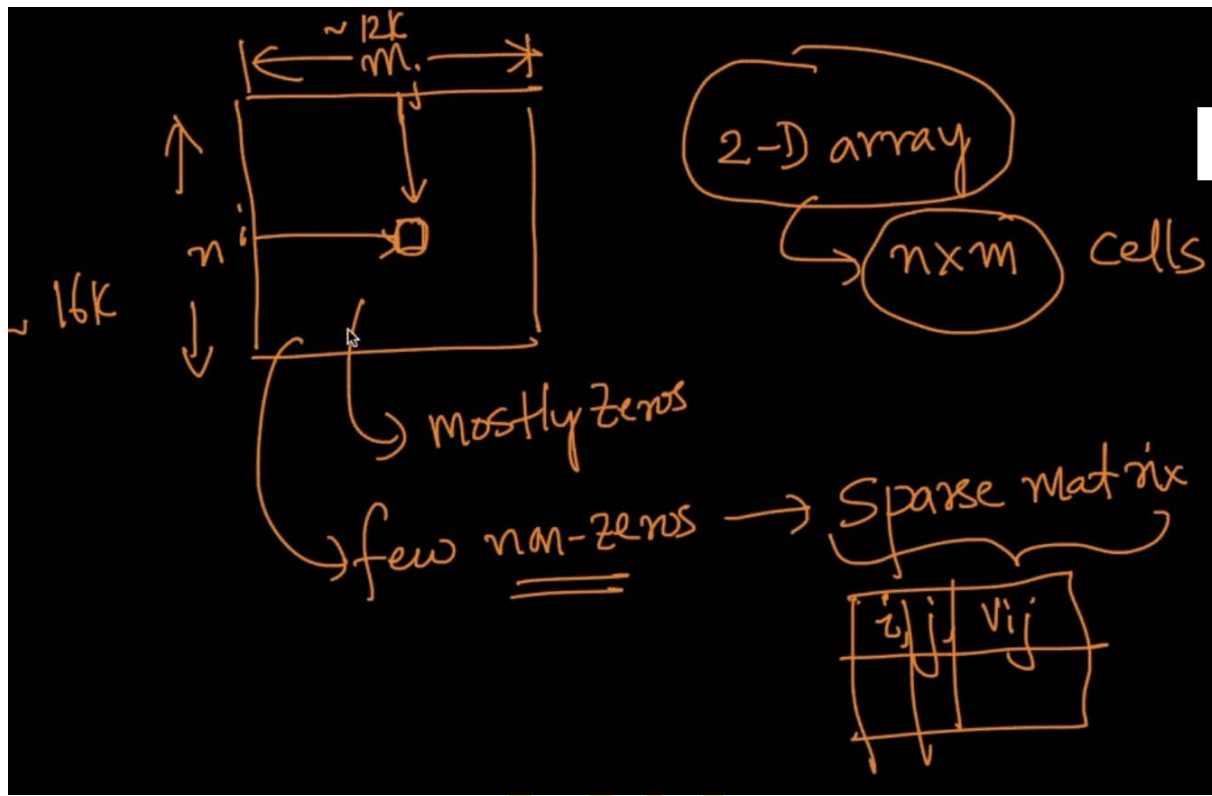 ~ 12K
m
j
2-D array
n
i
n×m cells
~ 16K
mostly zeros
few non-zeros → Sparse matrix
i, j, Vij